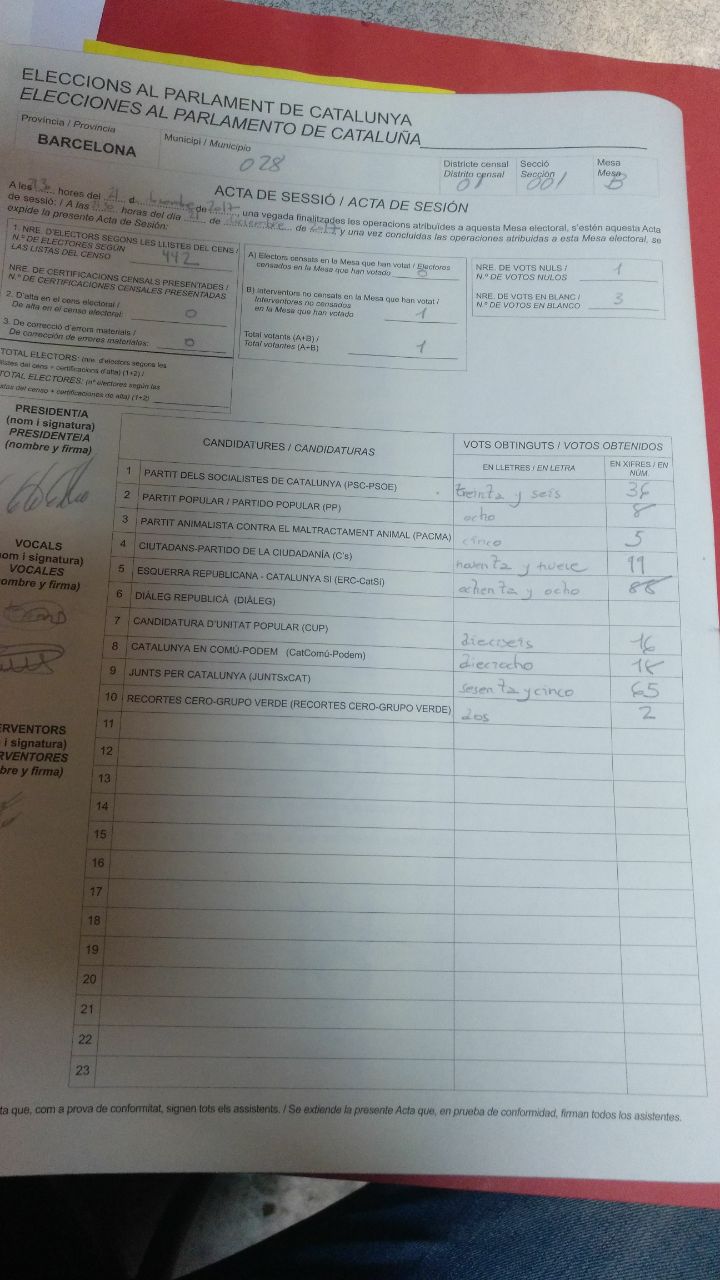 ELECCIONS AL PARLAMENT DE CATALUNYA
ELECCIONES AL PARLAMENTO DE CATALUÑA
Província / Provincia
BARCELONA
Municipi / Municipio
028
Districte censal
Distrito censal
01
Secció
Sección
001
Mesa
Mesa
B
ACTA DE SESSIÓ / ACTA DE SESIÓN
A les 23 hores del 21 d de 2017, una vegada finalitzades les operacions atribuïdes a aquesta Mesa electoral, s'estén aquesta Acta
de sessió: / A las horas del día 21 de diciembre de 2017 y una vez concluidas las operaciones atribuidas a esta Mesa electoral, se
expide la presente Acta de Sesión:
1. NRE. D'ELECTORS SEGONS LES LLISTES DEL CENS /
N.º DE ELECTORES SEGÚN
LAS LISTAS DEL CENSO
442
NRE. DE CERTIFICACIONS CENSALS PRESENTADES /
N.º DE CERTIFICACIONES CENSALES PRESENTADAS
2. D'alta en el cens electoral /
De alta en el censo electoral:
0
3. De correcció d'errors materials /
De corrección de errores materiales:
0
TOTAL ELECTORS: (nre. d'electors segons les
llistes del cens + certificacions d'alta) (1+2) /
TOTAL ELECTORES: (nº electores según las
listas del censo + certificaciones de alta) (1+2)
A) Electors censats en la Mesa que han votat / Electores
censados en la Mesa que han votado
0
B) Interventors no censats en la Mesa que han votat /
Interventores no censados
en la Mesa que han votado
1
Total votants (A+B) /
Total votantes (A+B)
1
NRE. DE VOTS NULS /
N.º DE VOTOS NULOS
1
NRE. DE VOTS EN BLANC /
N.º DE VOTOS EN BLANCO
3
PRESIDENT/A
(nom i signatura)
PRESIDENTE/A
(nombre y firma)
VOCALS
(nom i signatura)
VOCALES
(nombre y firma)
ERVENTORS
i signatura)
RVENTORES
bre y firma)
CANDIDATURES / CANDIDATURAS
VOTS OBTINGUTS / VOTOS OBTENIDOS
EN LLETRES / EN LETRA
EN XIFRES / EN NÚM.
1 PARTIT DELS SOCIALISTES DE CATALUNYA (PSC-PSOE) treinta y seis 36
2 PARTIT POPULAR / PARTIDO POPULAR (PP) ocho 8
3 PARTIT ANIMALISTA CONTRA EL MALTRACTAMENT ANIMAL (PACMA) cinco 5
4 CIUTADANS-PARTIDO DE LA CIUDADANÍA (C's) noventa y nueve 99
5 ESQUERRA REPUBLICANA - CATALUNYA SÍ (ERC-CatSí) ochenta y ocho 88
6 DIÀLEG REPUBLICÀ (DIÀLEG)
7 CANDIDATURA D'UNITAT POPULAR (CUP) dieciseis 16
8 CATALUNYA EN COMÚ-PODEM (CatComú-Podem) dieciocho 18
9 JUNTS PER CATALUNYA (JUNTSxCAT) sesenta y cinco 65
10 RECORTES CERO-GRUPO VERDE (RECORTES CERO-GRUPO VERDE) dos 2
11
12
13
14
15
16
17
18
19
20
21
22
23
ta que, com a prova de conformitat, signen tots els assistents. / Se extiende la presente Acta que, en prueba de conformidad, firman todos los asistentes.